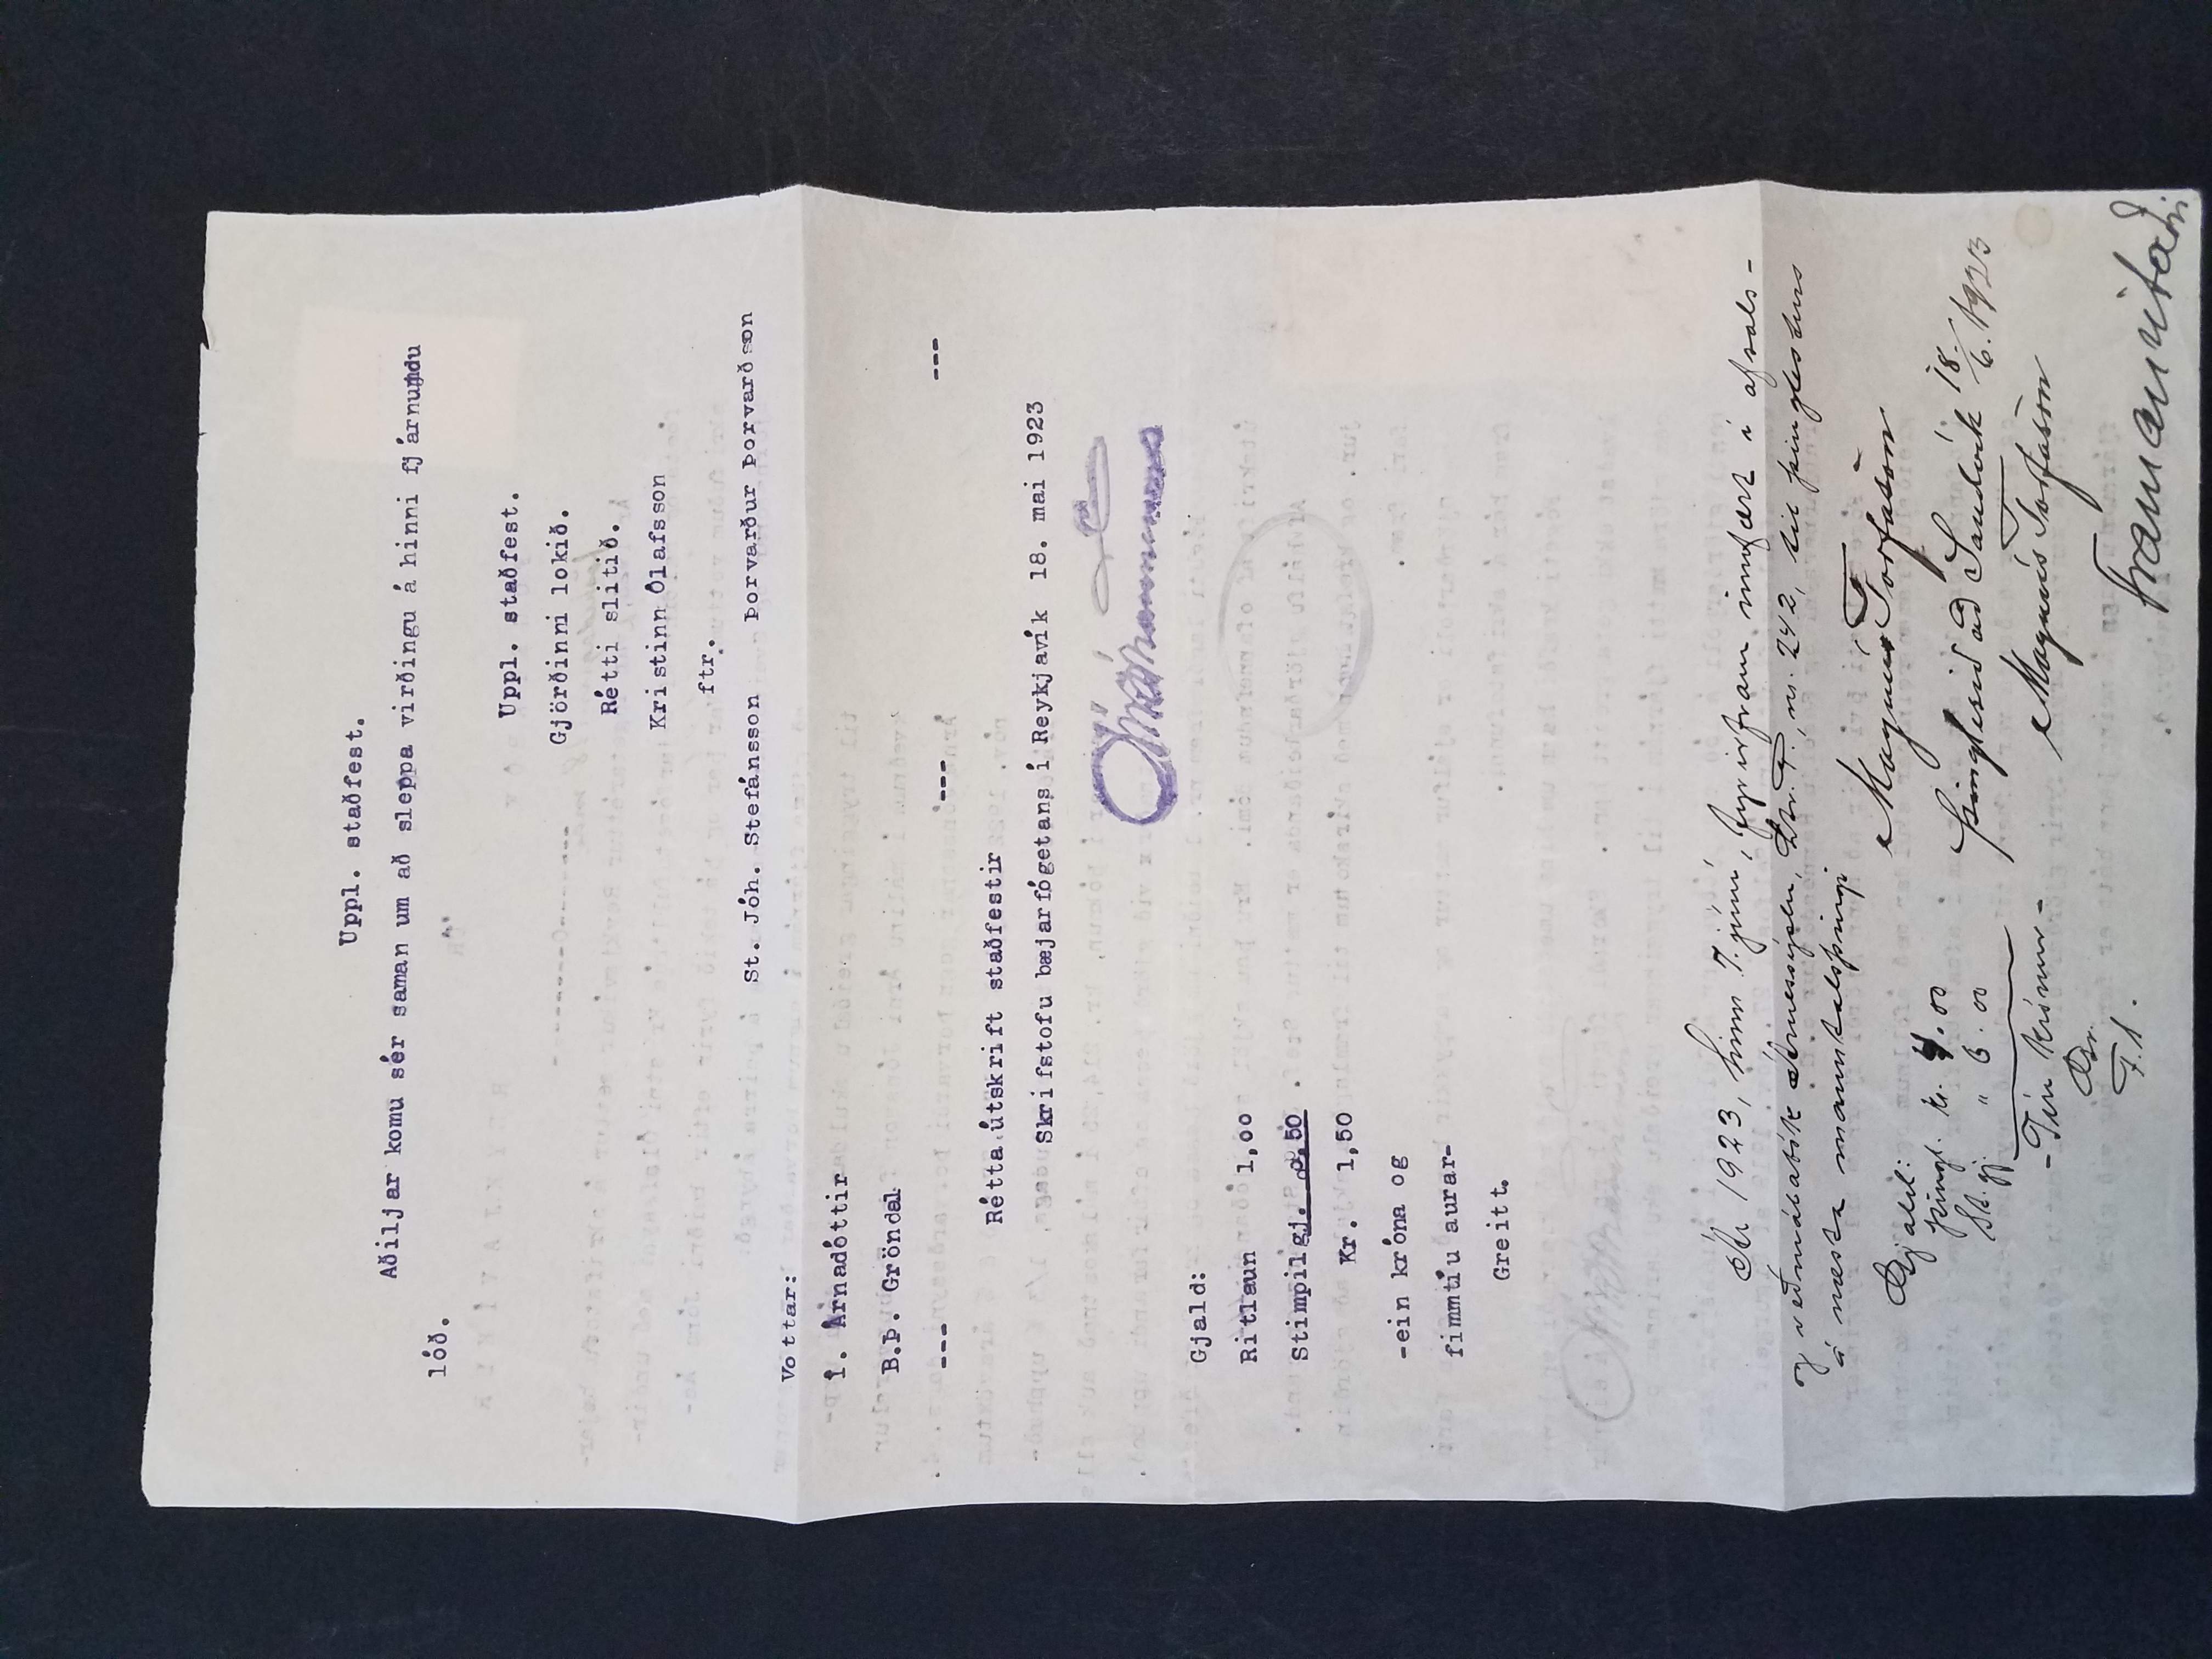 Uppl. staðfest.
Aðiljar komu sér saman um að sleppa virðingu á hinni fjárnumdu
lóð.
Uppl. staðfest.
Gjörðinni lokið.
Rétti slitið.
Kristinn Ólafsson
ftr.
St. Jóh. Stefánsson Þorvarður Þorvarðsson
Vottar:
Í. Árnadóttir
B.Þ. Gröndal
--- --- ---
Rétta útskrift staðfestir
Skrifstofu bæjarfógetans í Reykjavík 18. mai 1923
Jóh. Jóhannesson
Gjald:
Ritlaun 1,00
Stimpilgj. 0.50
Kr. 1,50
-ein króna og
fimmtíu aurar-
Greitt.
Ár 1923, hinn 7. júní, fyrirfram innfært í afsals-
og veðmálabók Árnessýslu, Litr. F., nr. 242, til þinglesturs
á næsta manntalsþingi
Magnús Torfason
Gjald:
þingl. kr. 4.00
St.gj. " 6.00
-Tíu krónur-
Gr.
F.l.
Þinglesið að Sandvík 18/6 1923
Magnús Torfason